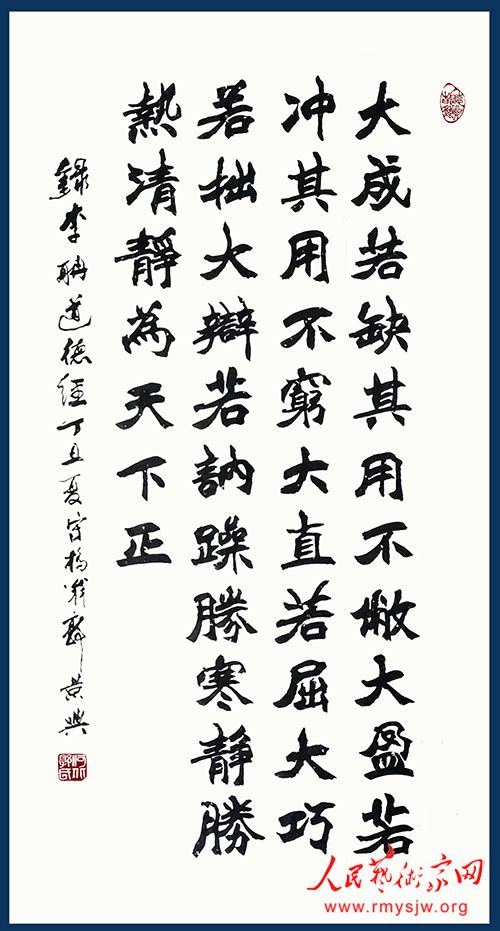 大成若缺其用不敝大盈若
冲其用不窮大直若屈大巧
若拙大辯若訥躁勝寒靜勝
熱清靜為天下正
録李聃道德經丁丑夏
人民藝術家网
www.rmysjw.org